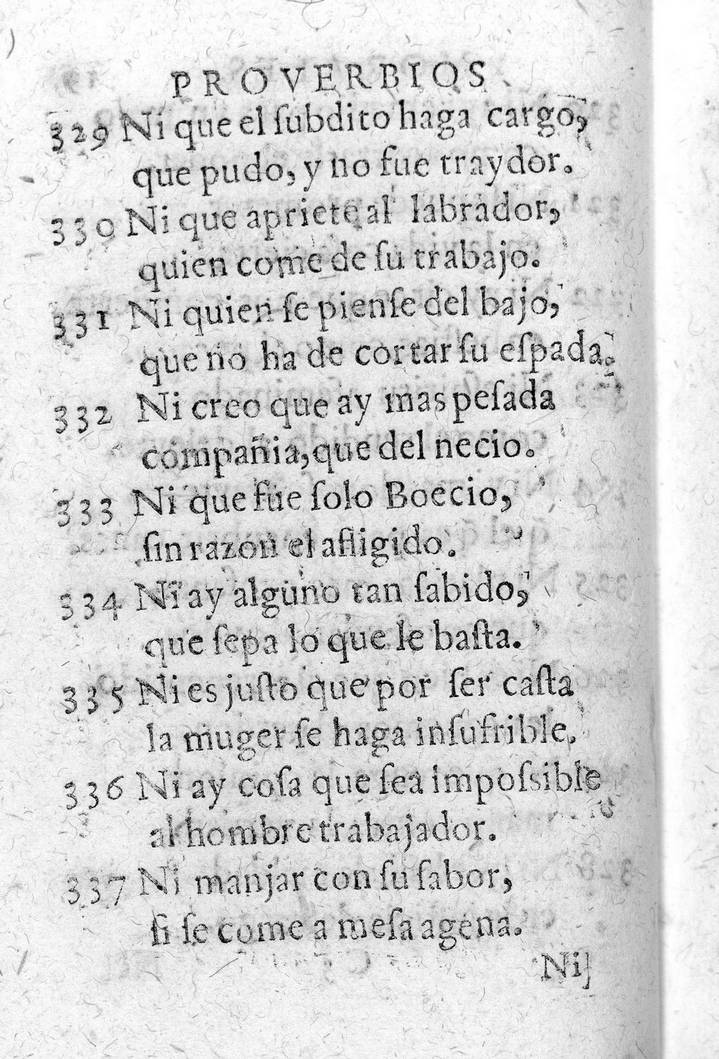 PROVERBIOS
329 Ni que el ſubdito haga cargo,
que pudo, y no fue traydor.
330 Ni que apriete al labrador,
quien come de ſu trabajo.
331 Ni quien ſe pienſe del bajo,
que no ha de cortar ſu eſpada.
332 Ni creo que ay mas peſada
compañia, que del necio.
333 Ni que fue ſolo Boecio,
ſin razon el afligido.
334 Ni ay alguno tan ſabido,
que ſepa lo que le baſta.
335 Ni es juſto que por ſer caſta
la muger ſe haga inſufrible.
336 Ni ay coſa que ſea impoſsible
al hombre trabajador.
337 Ni manjar con ſu ſabor,
ſi ſe come a meſa agena.
Ni